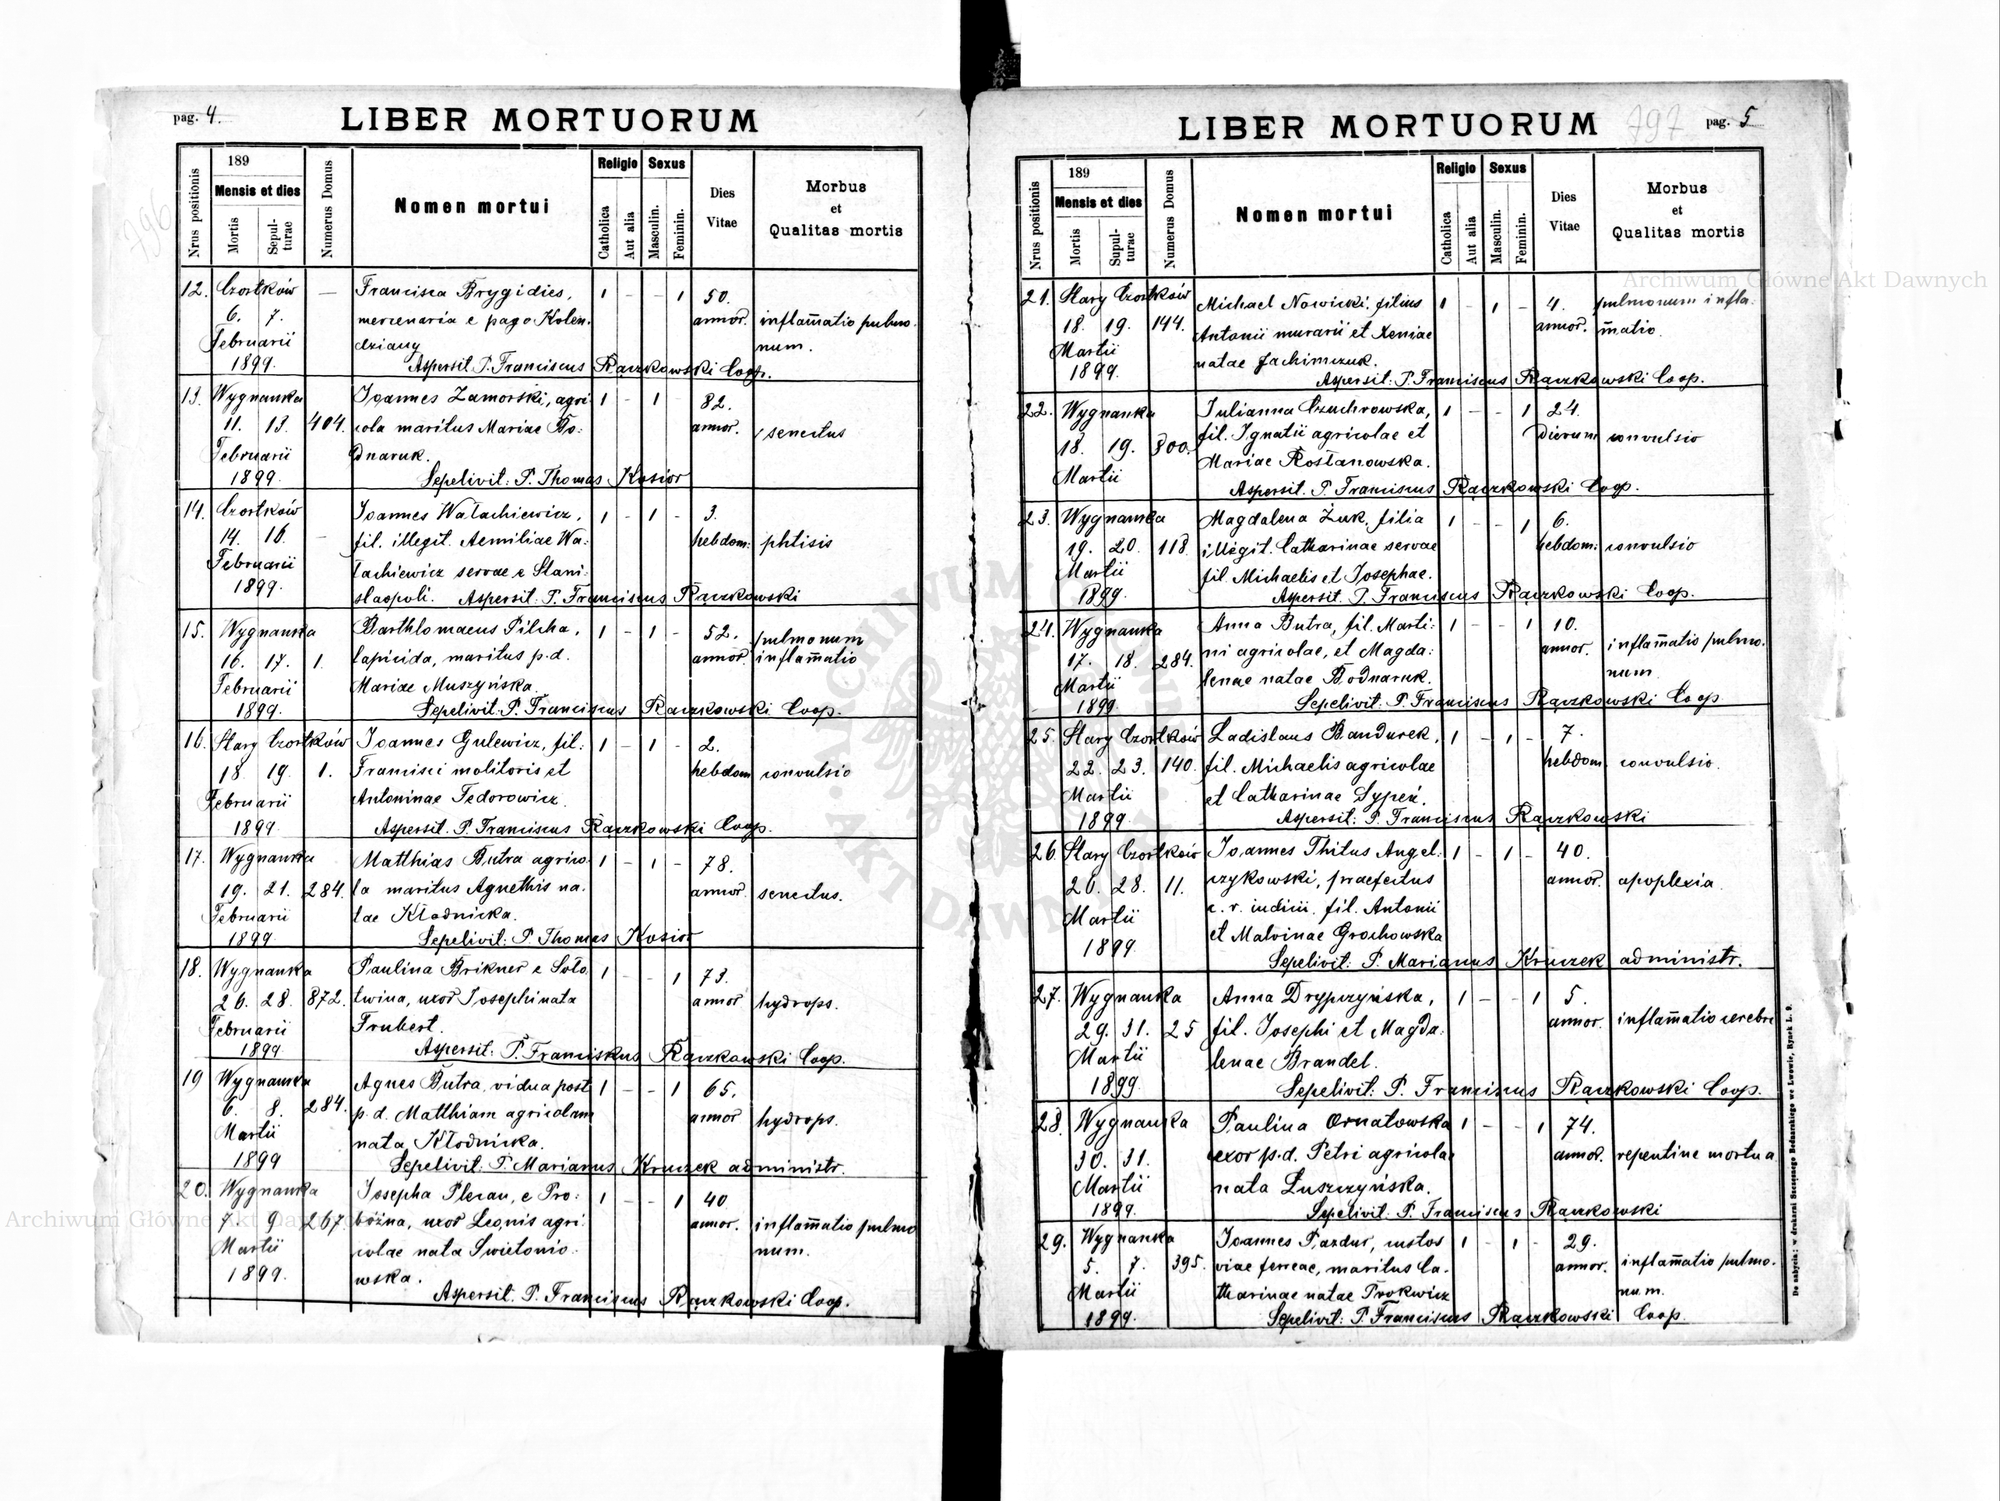 pag. 4.
LIBER MORTUORUM
Nrus positionis
189
Mensis et dies
Mortis
Sepul-
turae
Numerus Domus
Nomen mortui
Religio
Catholica
Aut alia
Sexus
Masculin.
Feminin.
Dies
Vitae
Morbus
et
Qualitas mortis
12. Czortków — Francisca Brygidies, 1 - - 1 50.
6. 7. mercenaria e pago Kolen: annor. inflam̄atio pulmo
Februarii dziany num.
1899. Aspersit P. Franciscus Rączkowski Coop.
13. Wygnanka Joannes Zamorski, agri: 1 - 1 - 82.
11. 13. 404. cola maritus Mariae Bo: annor. senectus
Februarii dnaruk.
1899. Sepelivit: P. Thomas Kosior
14. Czortków Joannes Wałachiewicz, 1 - 1 - 3.
14. 16. - fil. illegit. Aemiliae Wa: hebdom: phtisis
Februarii łachiewicz servae e Stani:
1899. slaopoli. Aspersit: P. Franciscus Rączkowski
15. Wygnanka Barthlomaeus Pilcha, 1 - 1 - 52. pulmonum
16. 17. 1. lapicida, maritus p.d. annor. inflam̄atio
Februarii Mariae Muszyńska
1899. Sepelivit: P. Franciscus Rączkowski Coop.
16. Stary Czortków Joannes Gulewicz, fil: 1 - 1 - 2.
18 19. 1. Francisci molitoris et hebdom convulsio
Februarii Antoninae Fedorowicz.
1899. Aspersit. P. Franciscus Rączkowski Coop.
17. Wygnanka Matthias Butra agrico: 1 - 1 - 78.
19. 21. 284. la maritus Agnethis na: annor. senectus.
Februarii tae Kłodnicka.
1899. Sepelivit: P. Thomas Kosior
18. Wygnanka Paulina Brikner e Soło 1 - - 1 73.
26. 28. 872. twina, uxor Josephi nata annor hydrops.
Februarii Frubert.
1899. Aspersit: P. Franciskus Rączkowski Coop.
19 Wygnanka Agnes Butra, vidua post 1 - - 1 65.
6. 8. 284. p. d. Matthiam agricolam annor hydrops.
Martii nata Kłodnicka.
1899 Sepelivit: P. Marianus Kruczek administr.
20. Wygnanka Josepha Pleran, e Pro: 1 - - 1 40
7 9 267. bóżna, uxor Leonis agri: annor. inflam̄atio pulmo
Martii colae nata Swietonio: num.
1899. wska.
Aspersit. P. Franciscus Rączkowski Coop.
LIBER MORTUORUM
797
pag. 5
Nrus positionis
189
Mensis et dies
Mortis
Supul-
turae
Numerus Domus
Nomen mortui
Religio
Catholica
Aut alia
Sexus
Masculin.
Feminin.
Dies
Vitae
Morbus
et
Qualitas mortis
21. Stary Czortków Michael Nowicki, filius 1 - 1 - 4. pulmonum infla:
18. 19. 144. Antonii murarii et Xeniae annor. m̄atio.
Martii natae Jachimczuk.
1899. Aspersit: P. Franciscus Rączkowski Coop.
22. Wygnanka Julianna Czuchrowska, 1 - - 1 24.
18. 19. 300. fil. Ignatii agricolae et dierum convulsio
Martii Mariae Rosłanowska.
Aspersit. P. Franciscus Rączkowski Coop.
23. Wygnanka Magdalena Żuk, filia 1 - - 1 6.
19. 20. 118. illegit. Catharinae servae hebdom: convulsio
Martii fil. Michaelis et Josephae.
1899. Aspersit. P. Franciscus Rączkowski Coop.
24. Wygnanka Anna Butra, fil. Marti: 1 - - 1 10.
17. 18. 284. ni agricolae, et Magda: annor. inflam̄atio pulmo.
Martii lenae natae Bodnaruk. num
1899 Sepelivit: P. Franciscus Rączkowski Coop
25. Stary Czortków Ladislaus Bandurek, 1 - 1 - 7.
22. 23. 140. fil. Michaelis agricolae hebdom. convulsio.
Martii et Catharinae Dypeń.
1899. Aspersit: P. Franciscus Rączkowski
26. Stary Czortków Joannes Thitus Angel: 1 - 1 - 40.
26. 28. 11. czykowski, praefectus annor. apoplexia.
Martii c. r. iudicii. fil. Antonii
1899. et Malvinae Grochowska
Sepelivit: P. Marianus Kruczek administr.
27. Wygnanka Anna Drypczyńska, 1 - - 1 5.
29. 31. 25 fil. Josephi et Magda: annor. inflam̄atio cerebri
Martii lenae Brandel.
1899 Sepelivit: P. Franciscus Rączkowski Coop.
28. Wygnanka Paulina Ornatowska 1 - - 1 74.
30. 31. uxor p.d. Petri agricolae annor. repentine mortua
Martii nata Łuszczyńska.
1899. Sepelivit: P. Franciscus Rączkowski
29. Wygnanka Joannes Pazdur, custos 1 - 1 - 29.
5. 7. 395. viae ferreae, maritus Ca: annor. inflam̄atio pulmo.
Martii tharinae natae Prokwicz num.
1899. Sepelivit: P. Franciscus Rączkowski Coop.
Do nabycia: w drukarni Szczęsnego Bednarskiego we Lwowie, Rynek L. 9.
796
Archiwum Główne Akt Dawnych
Archiwum Główne Akt Dawnych
ARCHIWUM GŁÓWNE AKT DAWNYCH